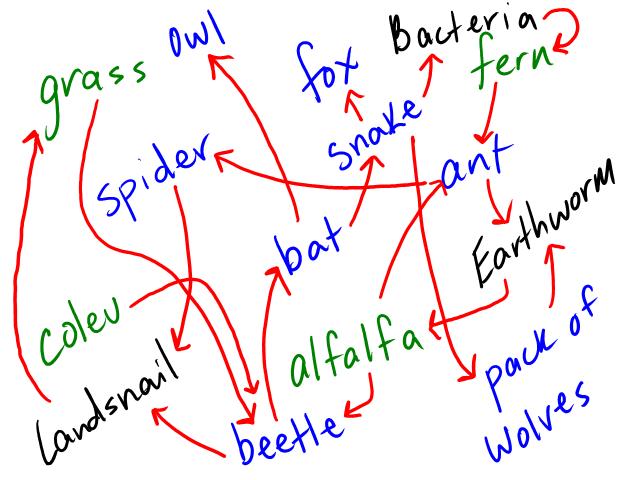 Bacteria
owl
fern
fox
grass
snake
ant
spider
Earthworm
bat
coleu
alfalfa
pack of
wolves
Landsnail
beetle